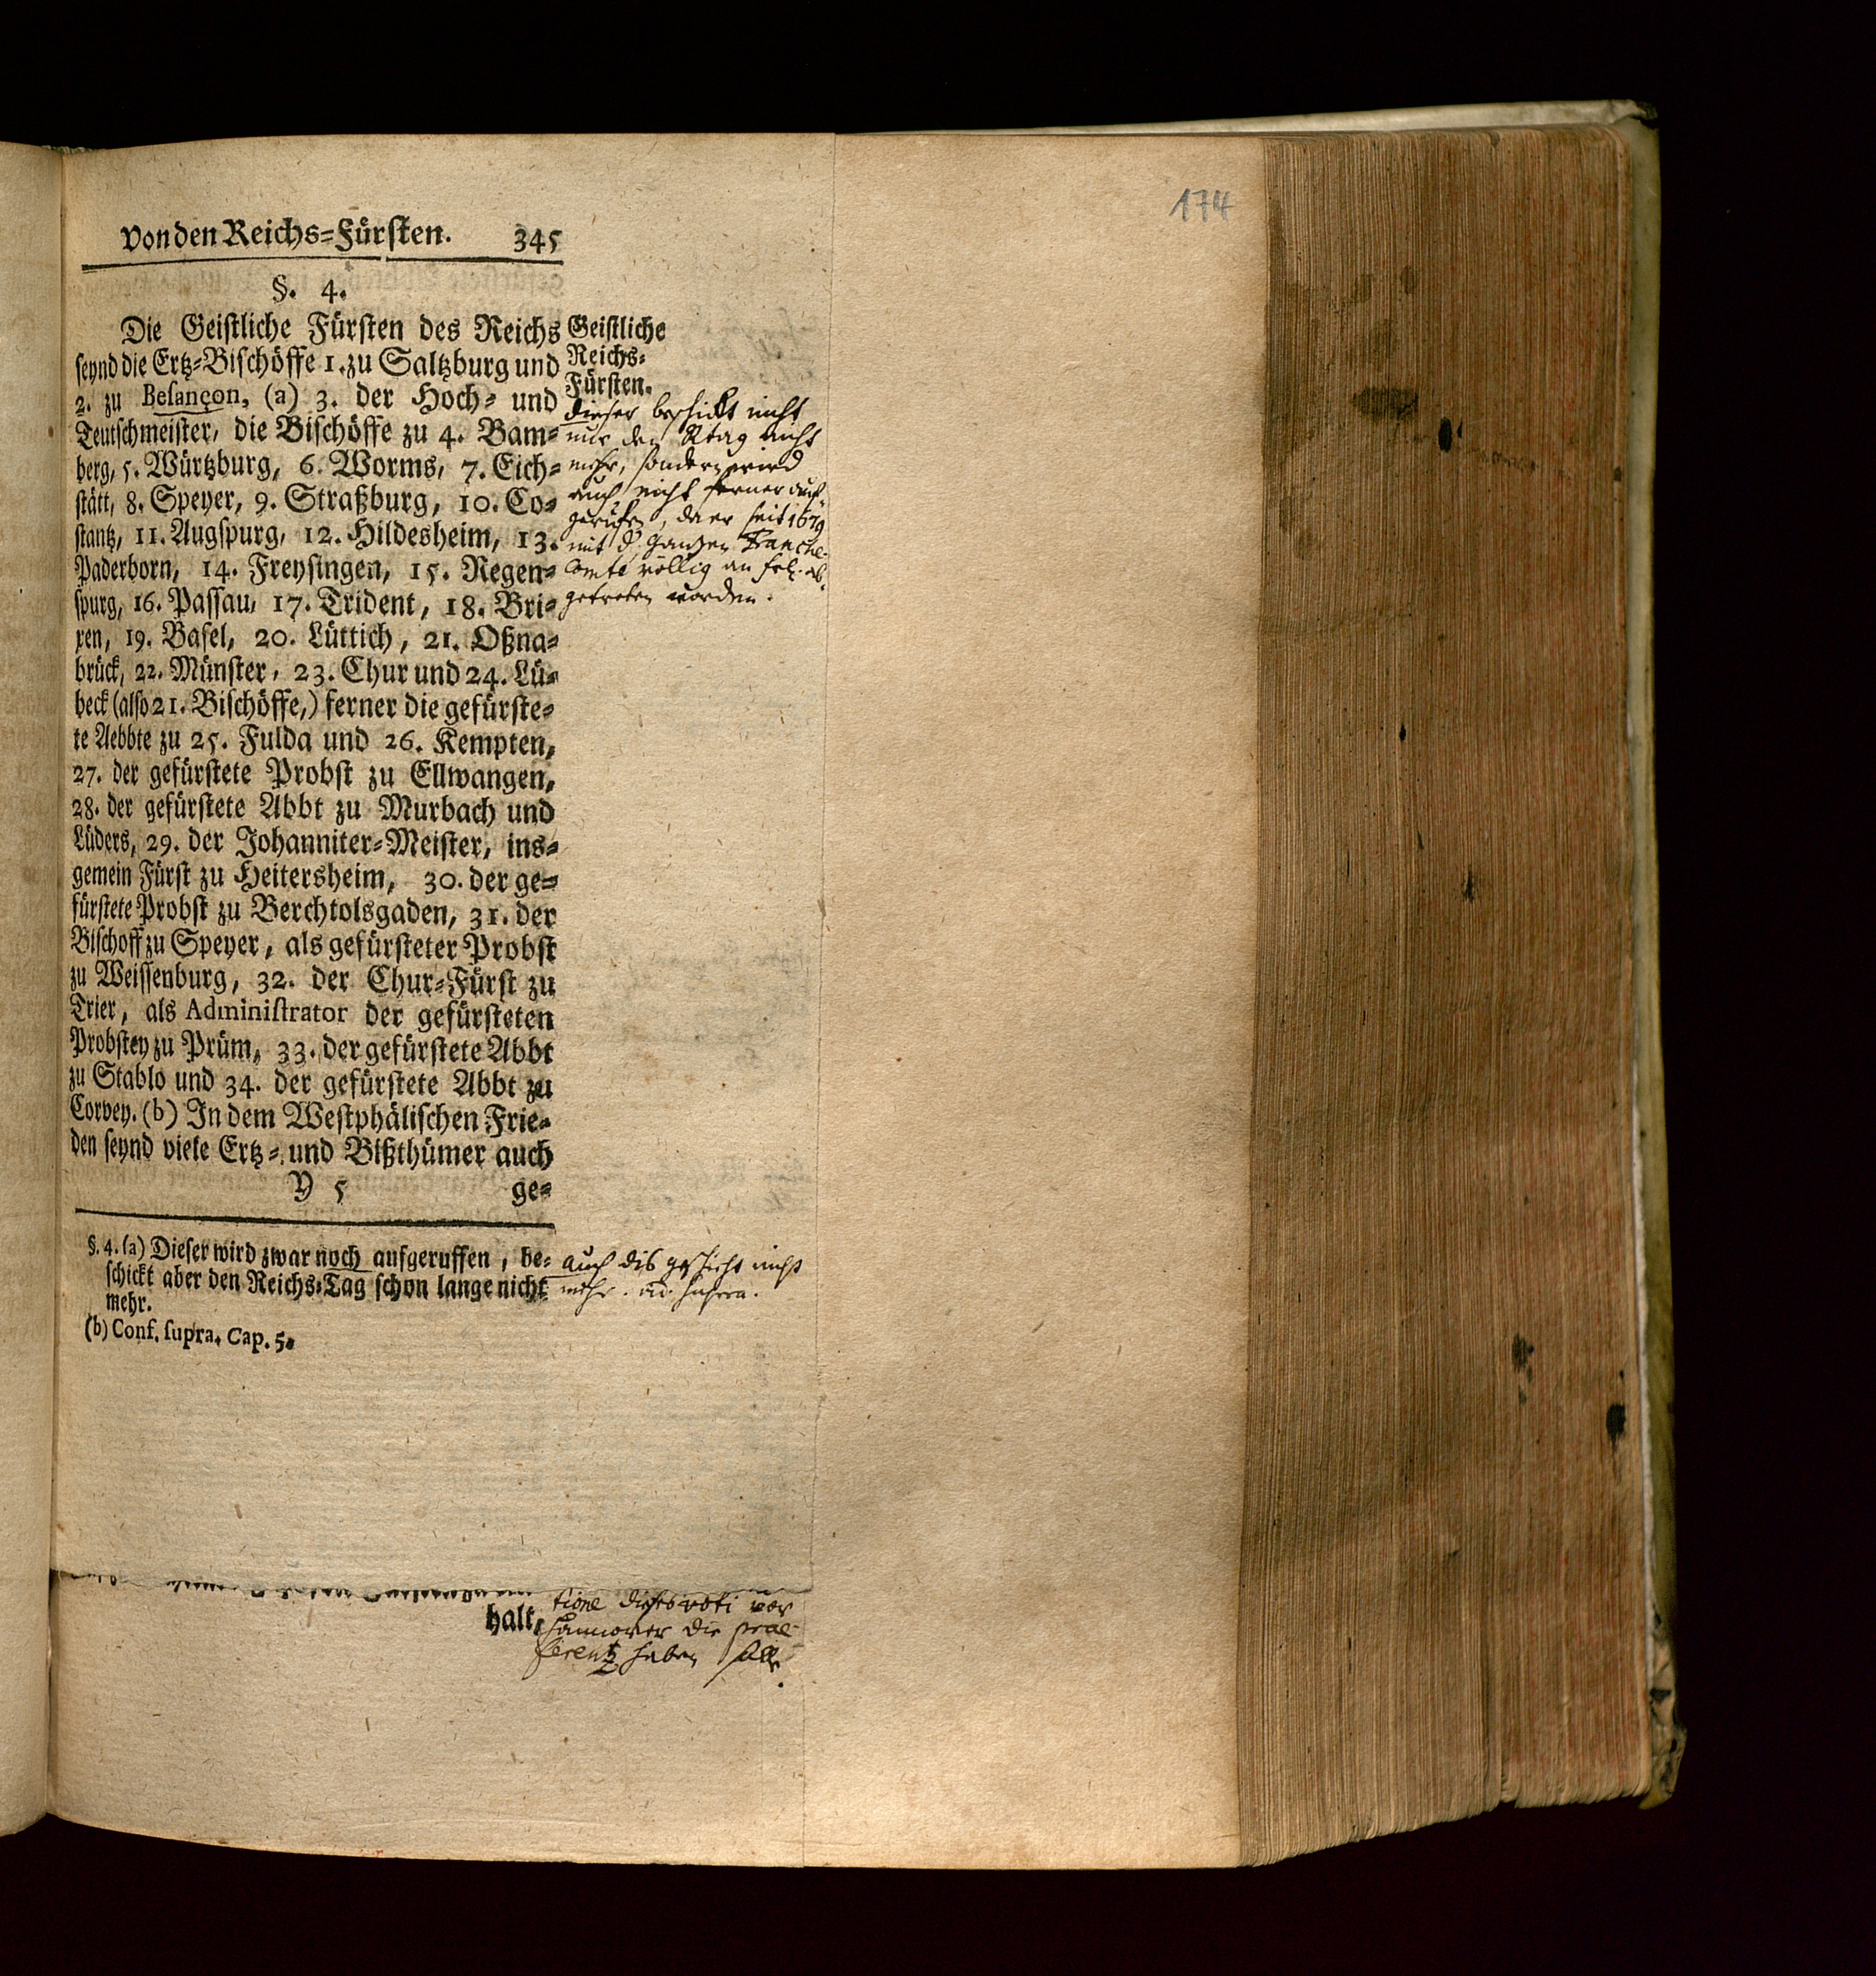 174
von den Reichs=Fürsten. 345
§. 4.
Die Geistliche Fürsten des Reichs
seynd die Ertz=Bischöffe 1. zu Saltzburg und
2. zu Besançon, (a) 3. der Hoch= und
Teutschmeister, die Bischöffe zu 4. Bam=
berg, 5. Würtzburg, 6. Worms, 7. Eich=
stätt, 8. Speyer, 9. Straßburg, 10. Co=
stantz, 11. Augspurg, 12. Hildesheim, 13.
Paderborn, 14. Freysingen, 15. Regen=
spurg, 16. Passau, 17. Trident, 18. Bri=
xen, 19. Basel, 20. Lüttich, 21. Oßna=
brück, 22. Münster, 23. Chur und 24. Lü=
beck (also 21. Bischöffe,) ferner die gefürste=
te Aebbte zu 25. Fulda und 26. Kempten,
27. der gefürstete Probst zu Ellwangen,
28. der gefürstete Abbt zu Murbach und
Lüders, 29. der Johanniter=Meister, ins=
gemein Fürst zu Heitersheim, 30. der ge=
fürstete Probst zu Berchtolsgaden, 31. der
Bischoff zu Speyer, als gefürsteter Probst
zu Weissenburg, 32. der Chur=Fürst zu
Trier, als Administrator der gefürsteten
Probstey zu Prüm, 33. der gefürstete Abbt
zu Stablo und 34. der gefürstete Abbt zu
Corvey. (b) In dem Westphälischen Frie=
den seynd viele Ertz= und Bißthümer auch
Y 5 ge=
Geistliche
Reichs=
Fürsten.
dieser beschickt nicht
nur den Rtag nicht
mehr, sondern wird
auch nicht ferner auf=
gerufen, da er seit 1679
mit d. ganzen Franche
Comté völlig an ab=
getreten worden.
§. 4. (a) Dieser wird zwar noch aufgeruffen, be=
schickt aber den Reichs=Tag schon lange nicht
mehr.
(b) Conf. supra. Cap. 5.
auch dis geschieht nicht
mehr.
halt,
tione dieses voti vor
Hannover die prae-
ferentz haben solle.